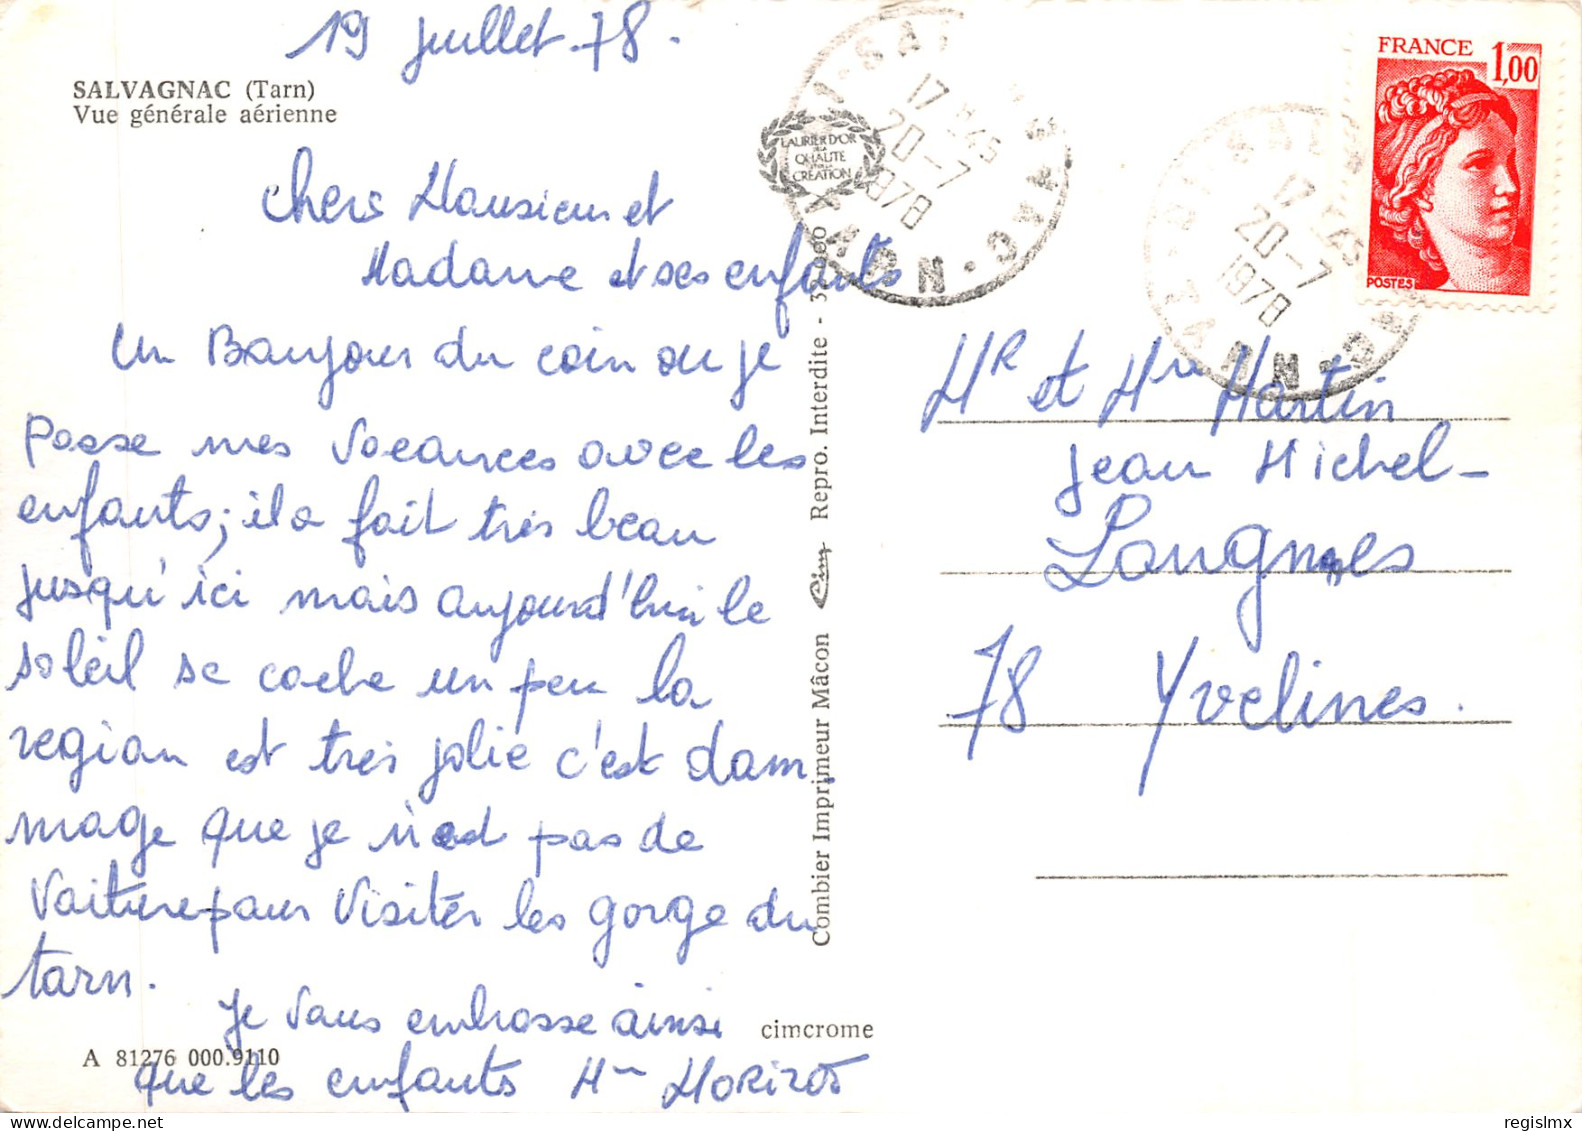 19 juillet.78.
SALVAGNAC (Tarn)
Vue générale aérienne
Chers Monsieur et
Madame et ses enfants
un Bonjour du coin ou je
passe mes vacances avec les
enfants; il a fait très beau
jusqu'ici mais aujourd'hui le
soleil se cache un peu la
region est très jolie c'est dom.
mage que je n'est pas de
voiture pour visiter les gorge du
tarn.
Je vous embrasse ainsi
que les enfants Mme
A 81276 000.9110
cimcrome
Combier Imprimeur Mâcon Cim Repro. Interdite -
LAURIER D'OR
DE LA
QUALITE
ET DE LA
CREATION
17 H45
20-7
1978
TARN
17 H45
20-7
1978
TARN
FRANCE 1,00
POSTES
Mr et Mme Martin
Jean Michel-
Longnes
78 Yvelines.
regislmx